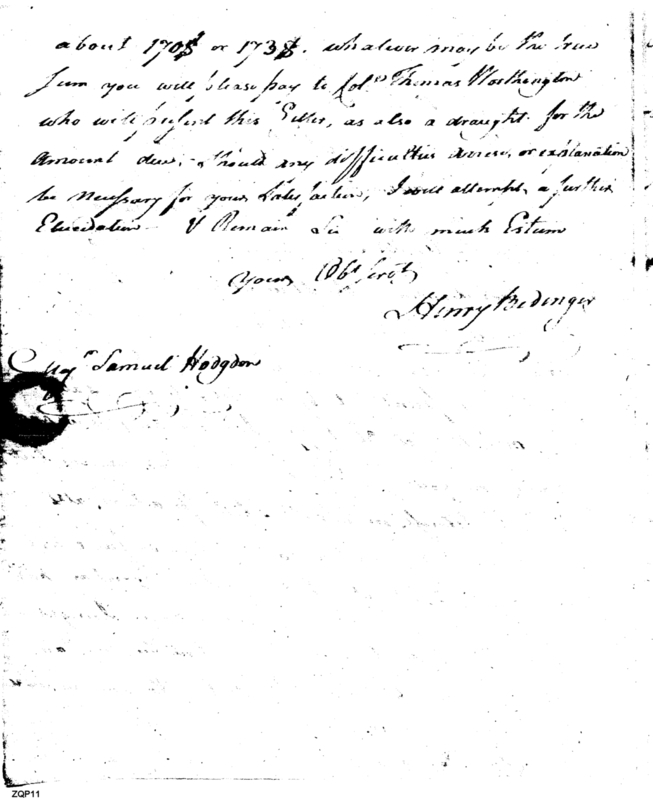 about 170$ or 173$. whatever may be the true
Sum you will please pay to Colo Thomas Worthington
who will present this Letter, as also a draught for the
Amount due, should any difficulties arrise, or explanation
be necessary for your Satisfaction, I will attempt a further
Elucidation I Remain Sir with much Esteem
Yours Obt Servt
Henry Bedinger
Samuel Hodgdon
ZQP11